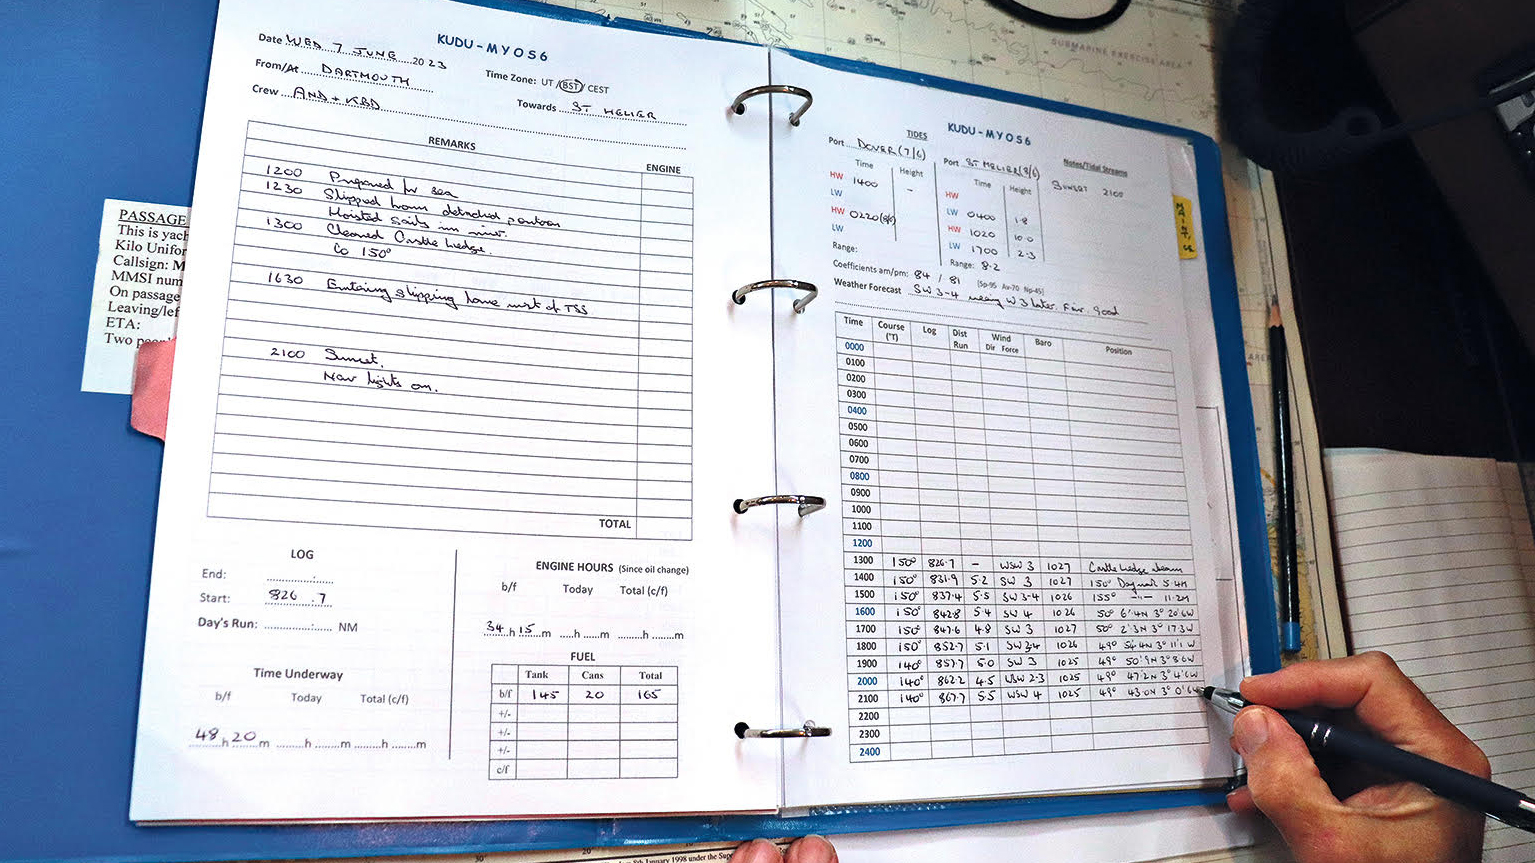 KUDU - MYOS6
Date WED 7 JUNE 2023
From/At DARTMOUTH
Time Zone: UT / BST / CEST
Crew AND + KBD
Towards ST HELIER
REMARKS ENGINE
1200 Prepared for sea
1230 Slipped from detached pontoon
Hoisted sails in river.
1300 Cleared Castle Ledge.
Co 150°
1630 Entering shipping lane west of TSS
2100 Sunset.
Nav lights on.
TOTAL
LOG
End:
Start: 826.7
Day's Run: NM
Time Underway
b/f Today Total (c/f)
48 h 20 m h m h m
ENGINE HOURS (Since oil change)
b/f Today Total (c/f)
34 h 15 m h m h m
FUEL
Tank Cans Total
b/f 145 20 165
+/-
+/-
+/-
c/f
PASSAGE
This is yach
Kilo Unifor
Callsign: M
MMSI num
On passage
Leaving/lef
ETA:
Two peopl
KUDU - MYOS6
TIDES
Port DOVER (7/6) Port ST HELIER (8/6) Notes/Tidal Streams
Time Height Time Height SUNSET 2100
HW 1400 - HW
LW LW 0400 1.8
HW 0220 (8/6) HW 1020 10.0
LW LW 1700 2.3
Range: Range: 8.2
Coefficients am/pm: 84 / 81 [Sp-95 Av-70 Np-45]
Weather Forecast SW 3-4 W 3 later. Fair. good
Time Course (°T) Log Dist Run Wind Dir Force Baro Position
0000
0100
0200
0300
0400
0500
0600
0700
0800
0900
1000
1100
1200
1300 150° 826.7 - WSW 3 1027 Castle Ledge abeam
1400 150° 831.9 5.2 SW 3 1027 150° Daymark 5.4M
1500 150° 837.4 5.5 SW 3-4 1026 155° -"- 11.2M
1600 150° 842.8 5.4 SW 4 1026 50° 6'.4N 3° 20'.6W
1700 150° 847.6 4.8 SW 3 1027 50° 2'.3N 3° 17'.3W
1800 150° 852.7 5.1 SW 3-4 1026 49° 54'.4N 3° 11'.1W
1900 140° 857.7 5.0 SW 3 1025 49° 50'.9N 3° 8'.6W
2000 140° 862.2 4.5 WSW 2-3 1025 49° 47'.2N 3° 4'.6W
2100 140° 867.7 5.5 WSW 4 1025 49° 43'.0N 3° 0'.6W
2200
2300
2400
SUBMARINE EXERCISE AREA
8th January 1998 under the Supe